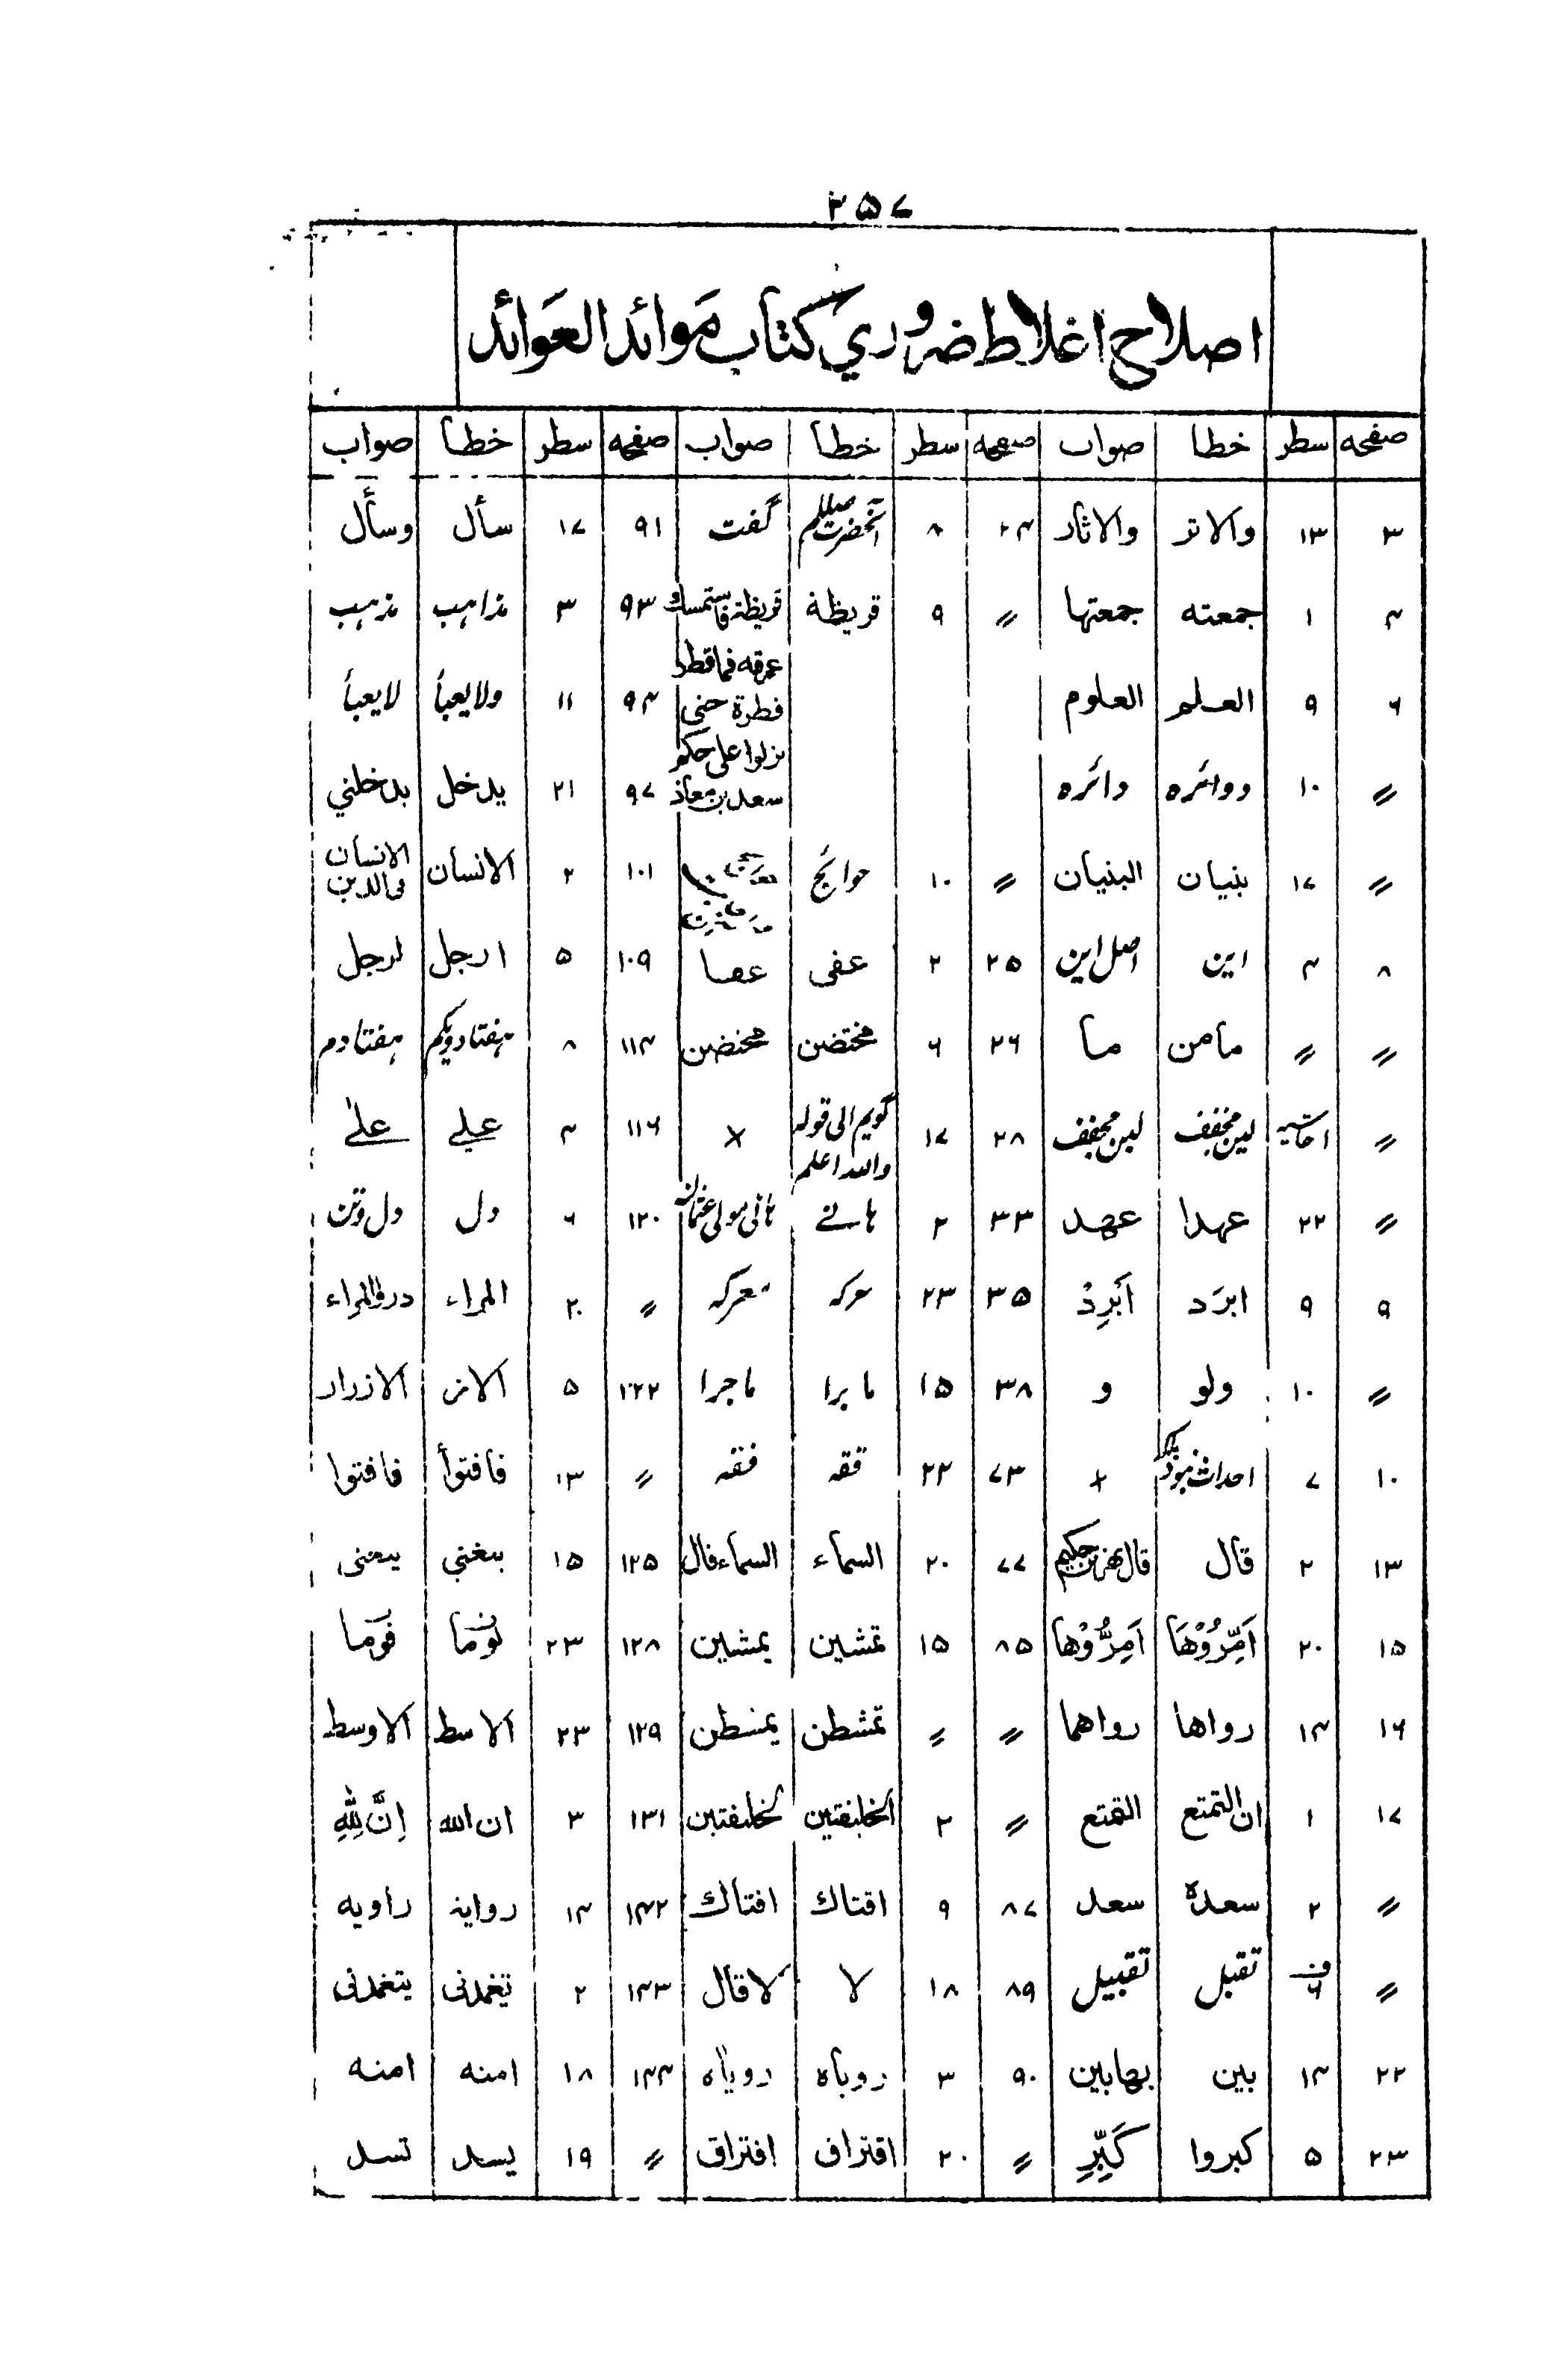 ۲۵۷
اصلاح اغلاط ضروري كتاب موائد العوائد
صفحه سطر خطا صواب صفحه سطر خطا صواب صفحه سطر خطا صواب
۳ ۱۳ والاثر والاثار ۲۴ ۸ آنحضرت صللم گفت ۹۱ ۱۷ سأل وسأل
۴ ۱ جمعته جمعتها 〃 ۹ قريظة قريظة فاستمسك ۹۳ ۳ مذاهب مذهب
عرقه فما قطر
۶ ۹ العلم العلوم قطرة حتى ۹۴ ۱۱ ولايعبأ لايعبأ
نزلوا على حكم
〃 ۱۰ ودائره دائره سعد بن معاذ ۹۷ ۲۱ يدخل يدخلني
〃 ۱۷ بنيان البنيان 〃 ۱۰ حوائج ۱۰۱ ۲ الانسان الانسان فى الدين
۸ ۴ اين اصل اين ۲۵ ۲ عفى عصا ۱۰۹ ۵ ارجل لرجل
〃 〃 مامن ما ۲۶ ۶ مختضن محتضن ۱۱۴ ۸ هفتاد ويكم هفتاد دم
〃 حاشيه ۱ لين مخفف لبن مجفف ۲۸ ۱۷ گويم الى قوله والله اعلم × ۱۱۶ ۴ علي علىٰ
〃 ۲۲ عهدا عهد ۳۳ ۲ هانے هانى مولى عثمان ۱۲۰ ۶ دل دل وتن
۹ ۹ ابرَد اَبْرِدْ ۳۵ ۲۳ عركه معركه 〃 ۲۰ المراء درء المراء
〃 ۱۰ ولو و ۳۸ ۱۵ مابرا ماجرا ۱۲۲ ۵ الازر الازرار
۱۰ ۷ × ۷۳ ۲۲ ققه فقه 〃 ۱۳ فافتوأ فافتوا
۱۳ ۲ قال قال بهز بن حكيم ۷۷ ۲۰ السماء السماء قال ۱۲۵ ۱۵ يبغني يعنى
۱۵ ۲۰ اَمِّرُوْهَا اَمِرُّوْها ۸۵ ۱۵ تمشين يمشين ۱۲۸ ۲۳ نوما قوما
۱۶ ۱۴ رواها رواهما 〃 〃 تمشطن يمشطن ۱۲۹ ۲۳ الاسط الاوسط
۱۷ ۱ ان التمتع التمتع 〃 ۲ الخليفتين لخليفتين ۱۳۱ ۳ ان الله اِنَّ لِلّٰهِ
〃 ۲ سعدة سعد ۸۷ ۹ اقتاك افتاك ۱۴۲ ۱۴ رواية راويه
〃 ف ۶ تقبل تقبيل ۸۹ ۱۸ لا لا قال ۱۴۳ ۲ تغمدنى يتغمدنى
۲۲ ۱۴ بين بها بين ۹۰ ۳ روباه روياه ۱۴۴ ۱۸ امنه امنه
۲۳ ۵ كبروا كَبِّرِ 〃 ۲۰ اقتراف افتراق 〃 ۱۹ يسد تسد